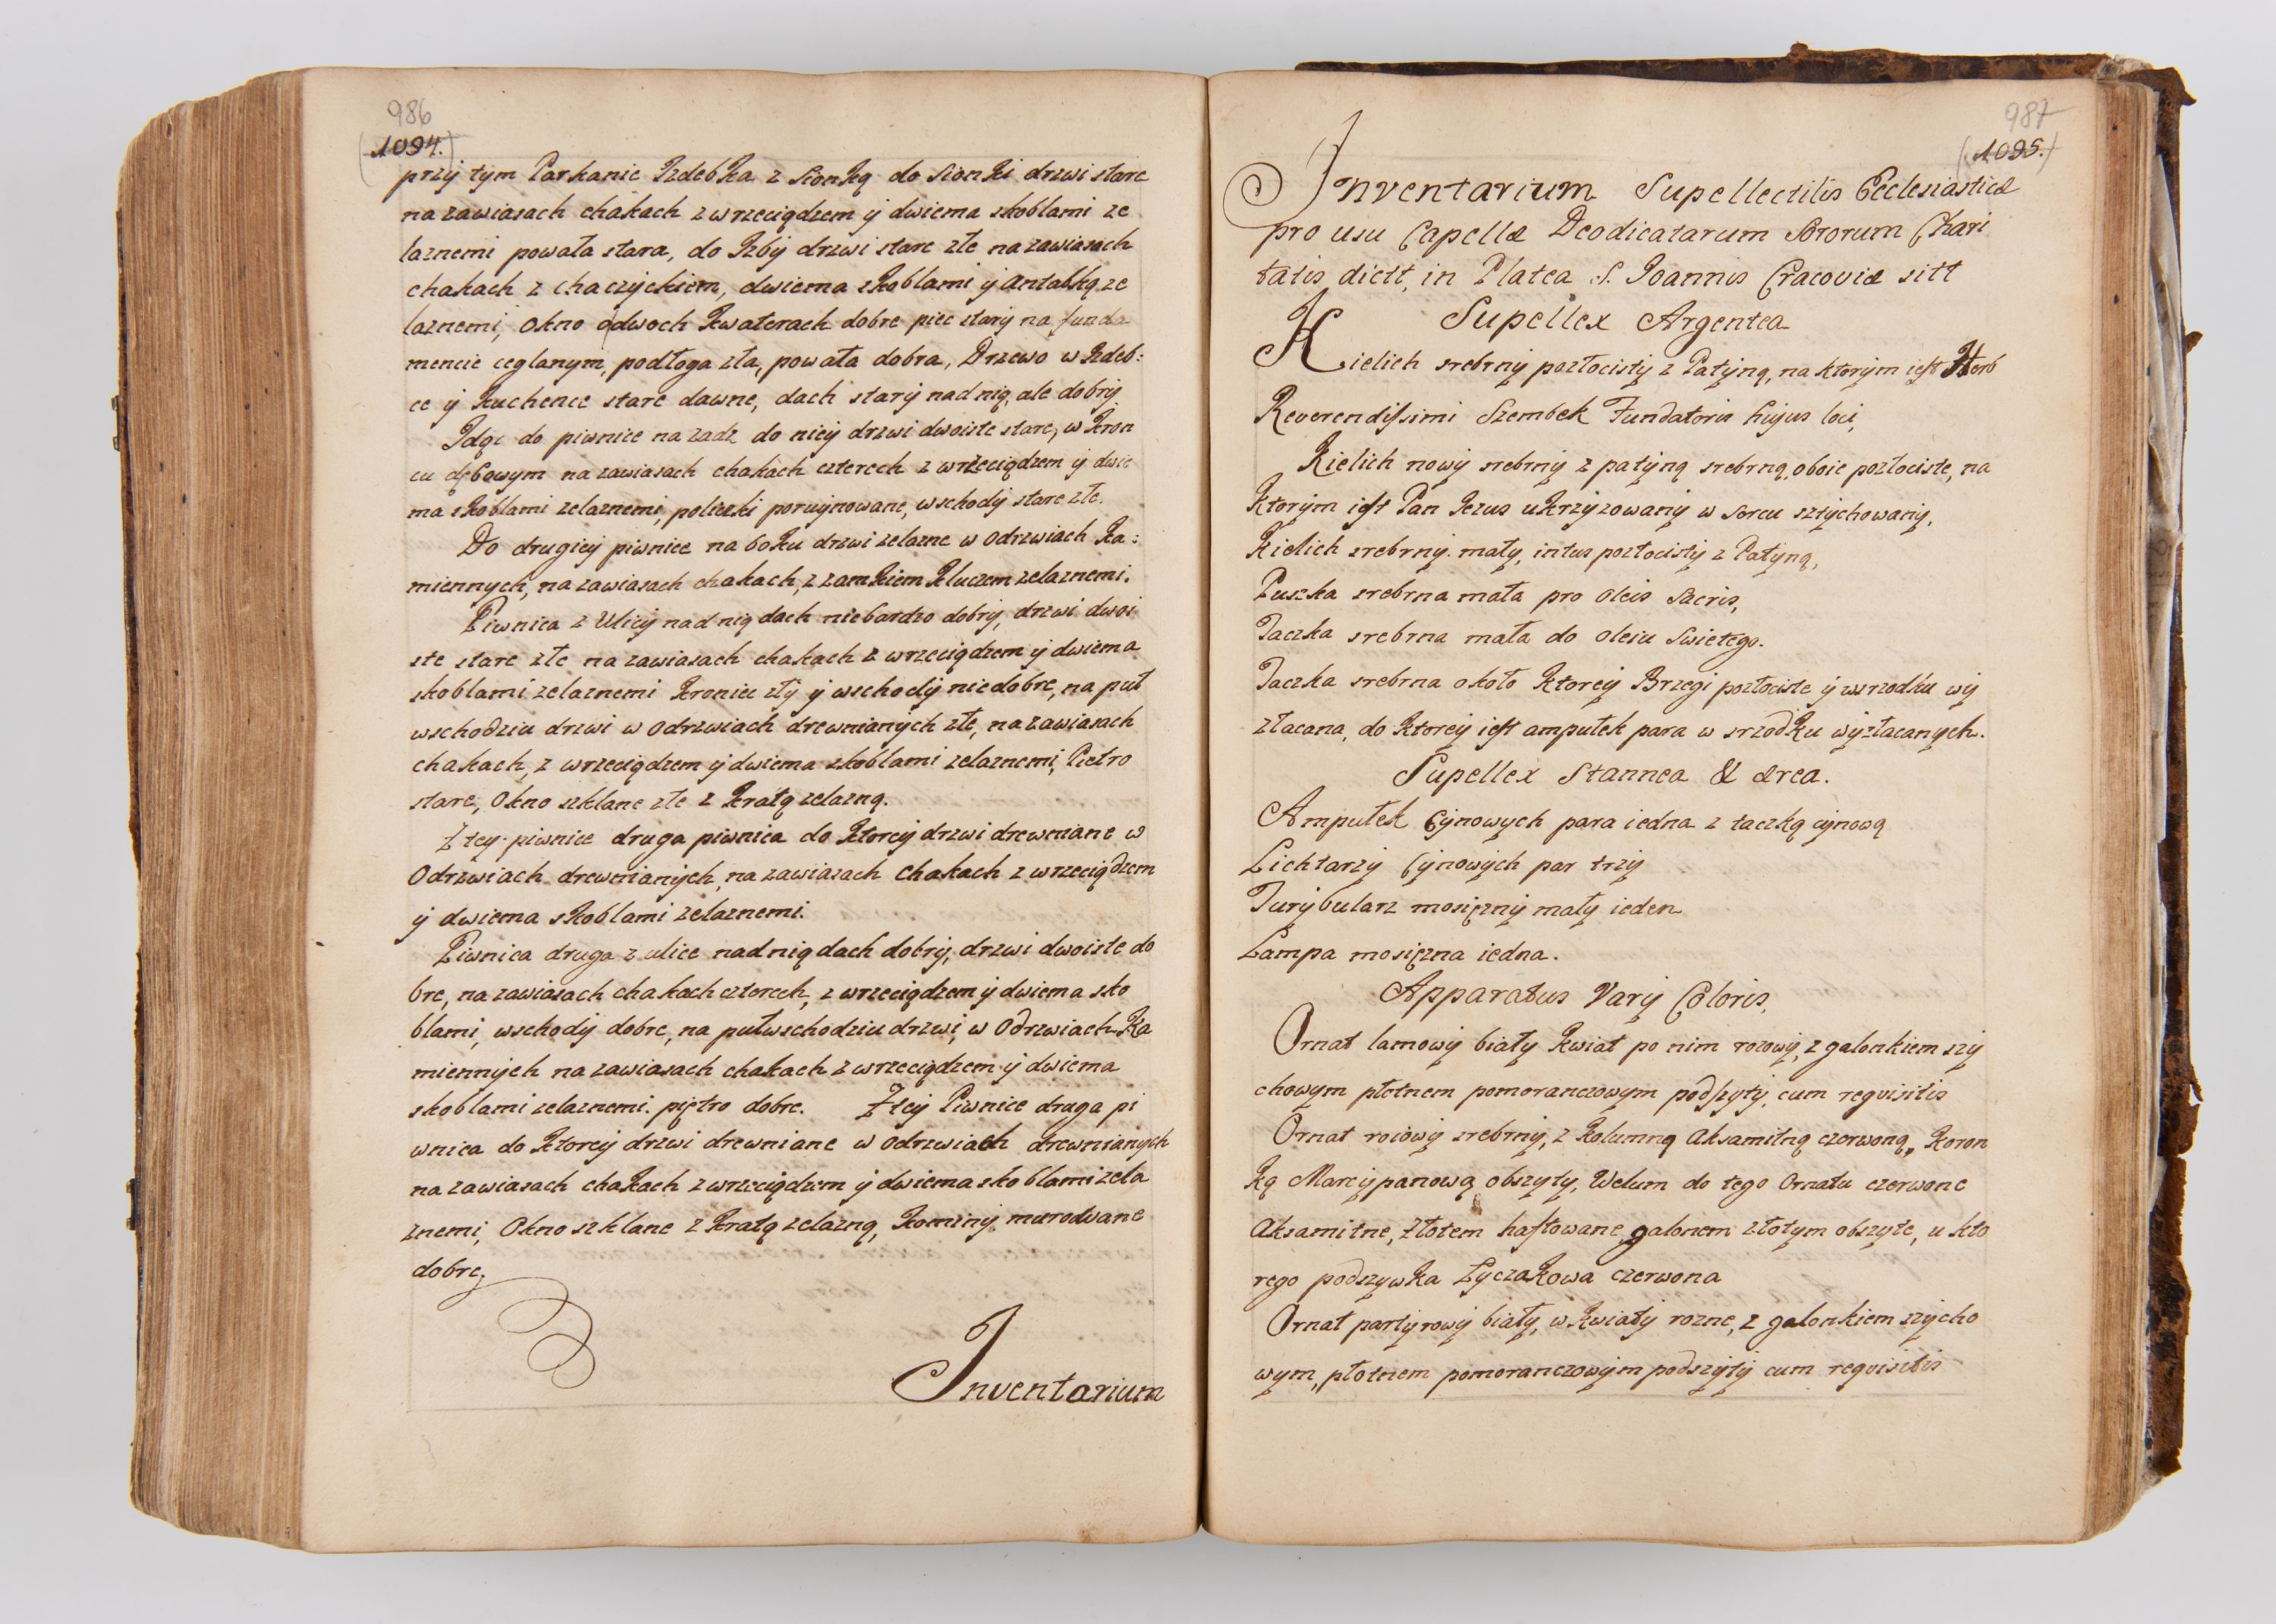 986
(1094.)
przÿ tym Parkanie Izdebka z sionką do sionki drzwi stare
na zawiasach chakach z wrzeciądzem ÿ dwiema skoblami ze
laznemi powała stara, do Izbÿ drzwi stare złe na zawiasach
chakach z chaczÿckiem, dwiema skoblami ÿ Antabką ze
laznemi, okno o dwoch kwaterach dobre piec starÿ na funda
mencie ceglanym, podłoga zła, powała dobra, Drzewo w Izdeb:
ce ÿ kuchence stare dawne, dach starÿ nad nią, ale dobrÿ
Idąc do piwnice na zadz do nieÿ drzwi dwoiste stare, w kron
cu dębowym na zawiasach chakach czterech z wrzeciądzem ÿ dwie
ma skoblami zelaznemi, policzki poruÿnowane, wschodÿ stare złe.
Do drugieÿ piwnice na boku drzwi zelazne w Odrzwiach ka:
miennÿch, na zawiasach chakach, z zamkiem kluczem zelaznemi.
Piwnica z Ulicÿ nad nią dach niebardzo dobrÿ, drzwi dwoi
ste stare złe na zawiasach chakach z wrzeciądzem ÿ dwiema
skoblami zelaznemi kroniec złÿ ÿ wschodÿ niedobre, na puł
wschodziu drzwi w Odrzwiach drewnianÿch złe, na zawiasach
chakach, z wrzeciądzem ÿ dwiema skoblami zelaznemi, Pietro
stare, Okno szklane złe z kratą zelazną.
Z teÿ piwnice druga piwnica do ktoreÿ drzwi drewniane w
Odrzwiach drewnianÿch, na zawiasach chakach z wrzeciądzem
ÿ dwiema skoblami zelaznemi.
Piwnica druga z ulice nad nią dach dobrÿ, drzwi dwoiste do
bre, na zawiasach chakach czterech, z wrzeciądzem ÿ dwiema sko
blami, wschodÿ dobre, na pułwschodziu drzwi, w Odrzwiach Ka
miennÿch na zawiasach chakach z wrzeciądzem ÿ dwiema
skoblami zelaznemi. piętro dobre. Z teÿ Piwnice druga pi
wnica do ktoreÿ drzwi drewniane w odrzwiach drewnianÿch
na zawiasach chakach z wrzeciądzem ÿ dwiema skoblami zela
znemi, Okno szklane z kratą zelazną, kominÿ murowane
dobre.
Inventarium
987
(1095.)
Inventarium Supellectilis Ecclesiasticæ
pro usu Capellæ Deodicatarum Sororum Chari
tatis dictt, in Platea S. Joannis Cracoviæ sitt
Supellex Argentea
Kielich srebrnÿ pozłocistÿ z Patÿną, na ktorÿm iest Herb
Reverendissimi Szembek Fundatoris hujus loci,
Kielich nowÿ srebrnÿ z patÿną srebrną, oboie pozłociste, na
ktorÿm iest Pan Jezus ukrzÿzowanÿ w sercu sztÿchowanÿ,
Kielich srebrnÿ małÿ, intus pozłocistÿ z Patÿną,
Puszka srebrna mała pro oleis Sacris,
Taczka srebrna mała do oleiu Swietego.
Taczka srebrna około ktoreÿ Brzegi pozłociste ÿ wsrzodku wÿ
złacana, do ktoreÿ iest ampułek para w srzodku wÿzłacanÿch.
Supellex Stannea & ærea.
Ampułek Cÿnowÿch para iedna z taczką cÿnową
Lichtarzÿ Cÿnowÿch par trzÿ
Turÿbularz mosięznÿ małÿ ieden
Lampa mosięzna iedna.
Apparatus Varÿ Coloris,
Ornat lamowÿ białÿ kwiat po nim rozowÿ, z galonkiem szÿ
chowÿm płotnem pomoranczowÿm podszÿtÿ, cum requisitis
Ornat roiowÿ srebrnÿ, z kolumną Aksamitną czerwoną, koron
ką Marcÿpanową obszÿtÿ, Welum do tego Ornatu czerwone
Aksamitne, złotem haftowane, galonem złotÿm obszÿte, u kto
rego podszÿwka Łyczakowa czerwona
Ornat partÿrowÿ białÿ, w kwiatÿ rozne, z galonkiem szÿcho
wÿm, płotnem pomoranczowÿm podszÿtÿ cum requisitis